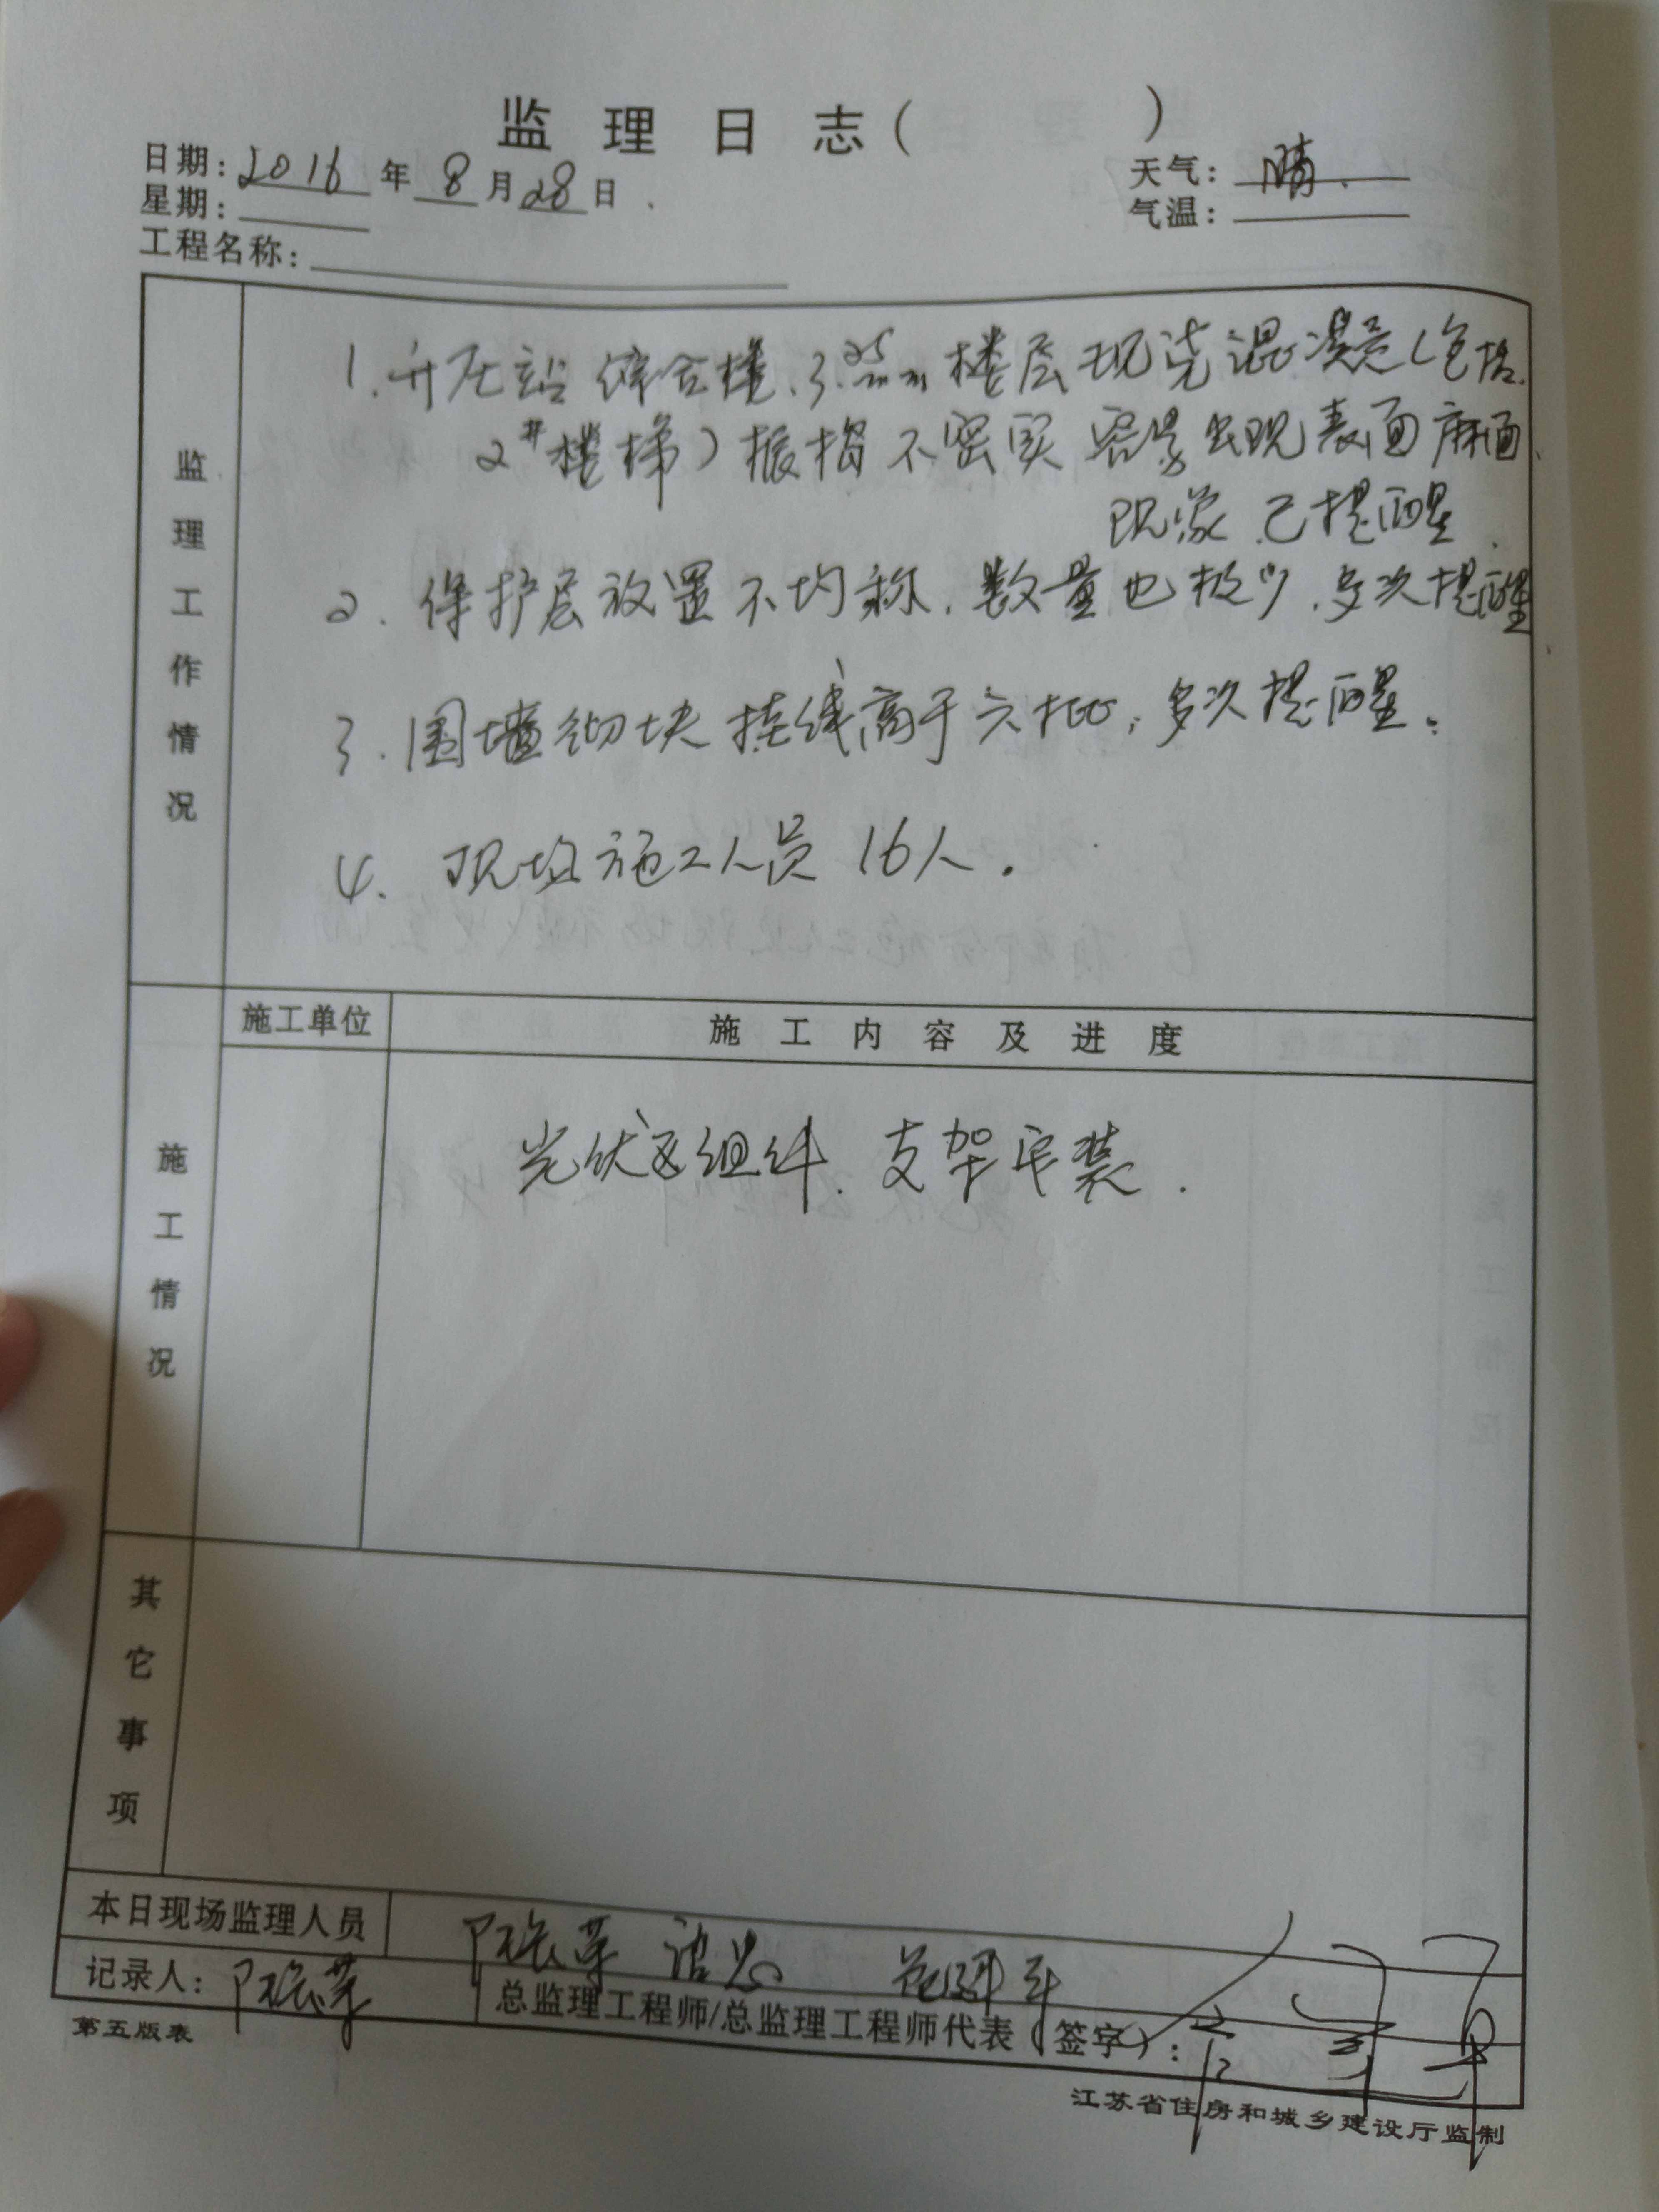 监理日志( )
日期: 2016 年 8 月 28 日.
天气: 晴.
星期:
气温:
工程名称:
监理工作情况
1. 升压站综合楼.3.25m楼层现浇混凝土(包括.
2#楼梯)振捣不密实 容易出现表面麻面、
现象.已提醒.
2. 保护层放置不均称.数量也极少.多次提醒
3. 围墙砌块挂线高于六批,多次提醒.
4. 现场施工人员16人.
施工单位
施工内容及进度
施工情况
光伏区组件.支架安装.
其它事项
本日现场监理人员
记录人:
总监理工程师/总监理工程师代表(签字):
第五版表
江苏省住房和城乡建设厅监制